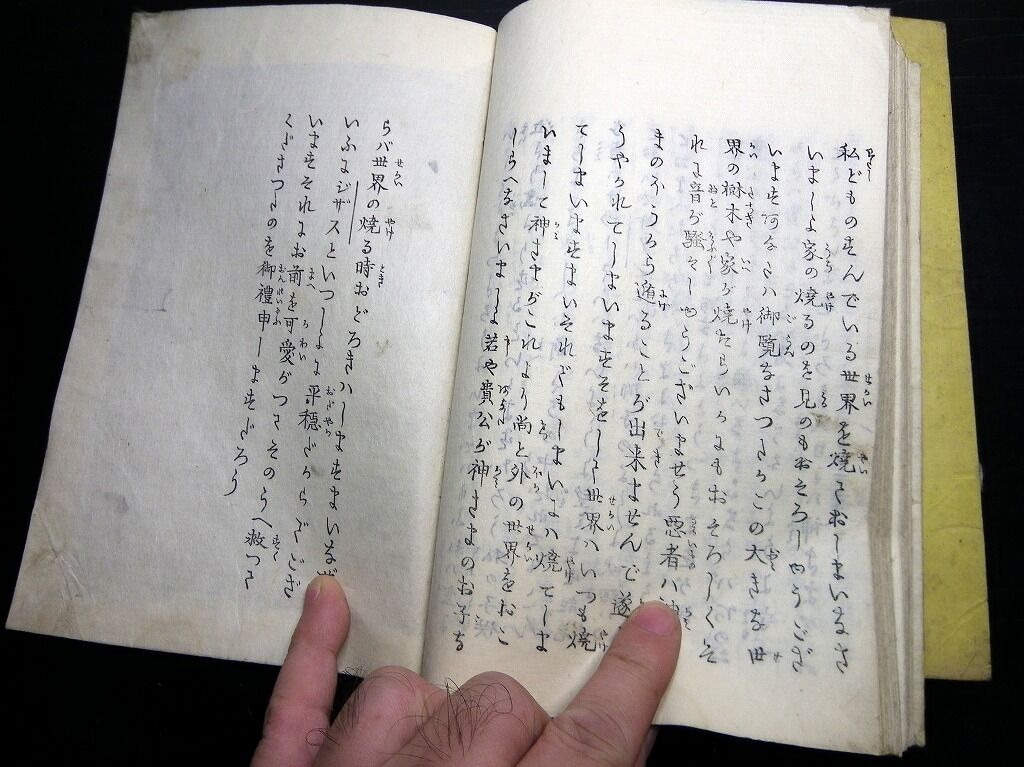 私どものすんでいる世界を焼ておしまいなさ
いましよ家の焼るのを見のもおそろしやうござ
いますあなたハ御覧なさつたかこの大きな世
界の樹木や家が焼たらいかにもおそろしくそ
れに音が騒そしやうございませう悪者ハ神
まのほうから遁ることが出来ませんで遂
うやかれてしまいますそをして世界ハいつも焼
てしまいますまいそれでもしまいにハ焼てしま
いまして神さまがこれより尚と外の世界をおこ
しらへなさいましよ若や貴公が神さまのお子な
らバ世界の焼る時おどろきハしますまいなぜ
いふにジザスといつしよに平穏だからでござ
いますそれにお前を可愛がつてそのうへ救つて
くださつたのを御禮申しますだろう